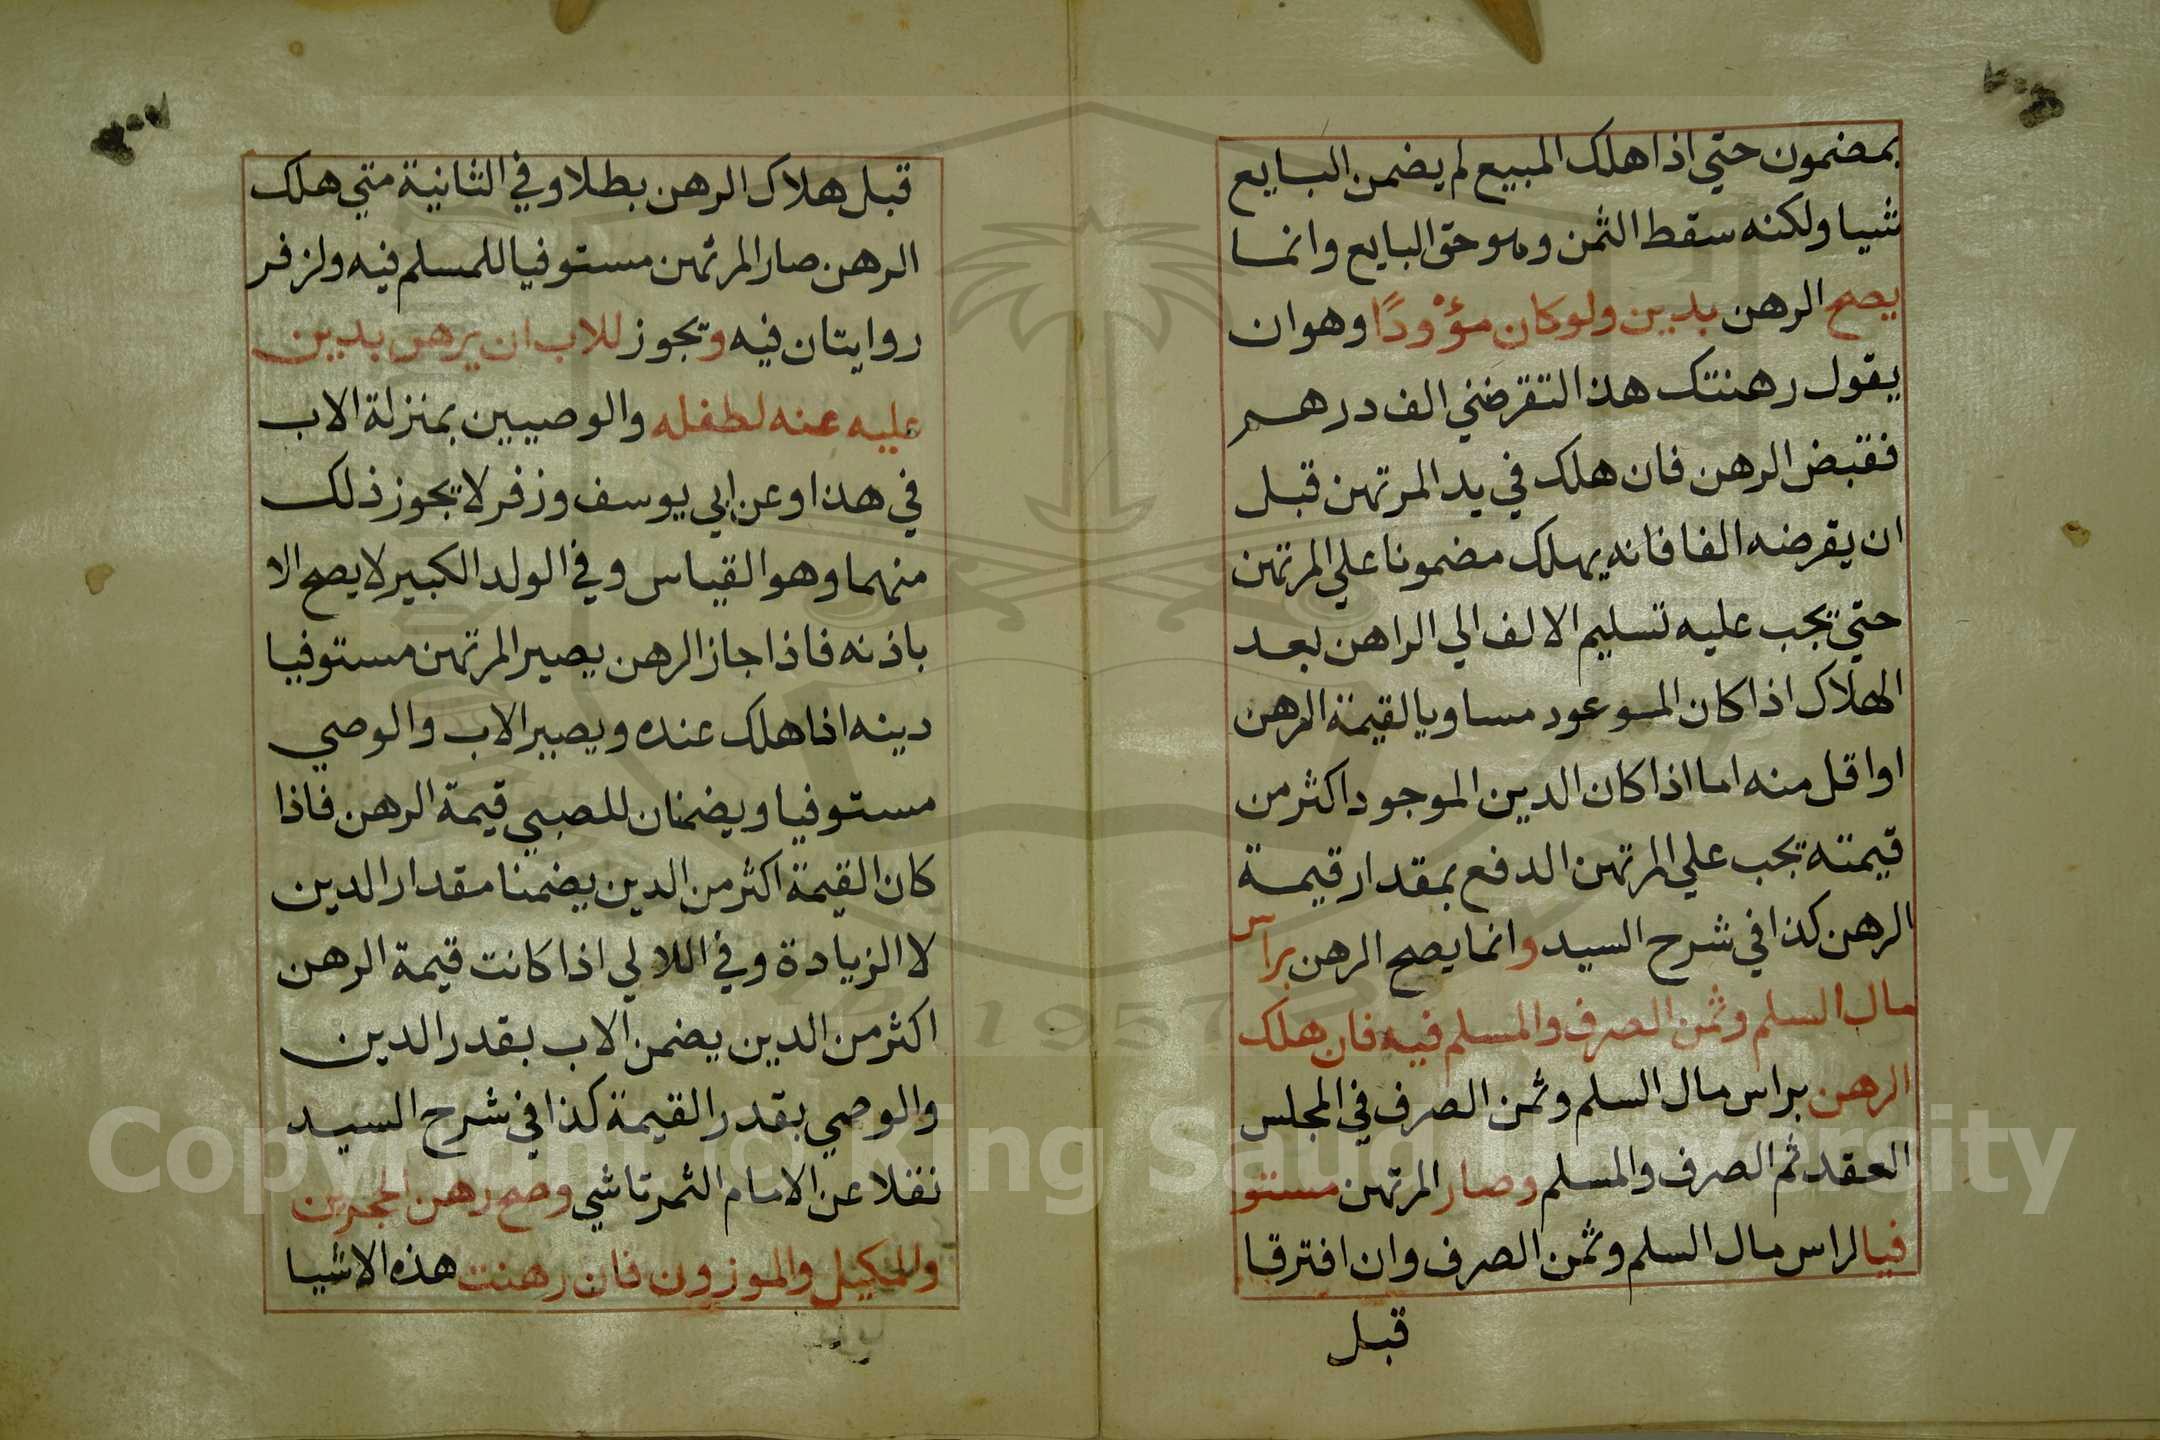 بمضمون حتي اذا هلك المبيع لم يضمن البايع
شيا ولكنه سقط الثمن وهو حق البايع وانما
يصح الرهن بدين ولو كان مؤودًا وهو ان
يقول رهنتك هذا لتقرضني الف درهم
فقبض الرهن فان هلك في يد المرتهن قبل
ان يقرضه الفا فانه يهلك مضمونا علي المرتهن
حتي يجب عليه تسليم الالف الي الراهن بعد
الهلاك اذا كان الموعود مساويا لقيمة الرهن
او اقل منه اما اذا كان الدين الموجود اكثر من
قيمته يجب علي المرتهن الدفع بمقدار قيمة
الرهن كذا في شرح السيد وانما يصح الرهن براس
مال السلم وثمن الصرف والمسلم فيه فان هلك
الرهن براس مال السلم وثمن الصرف في المجلس
العقد ثم الصرف والمسلم وصار المرتهن مستو
فيا لراس مال السلم وثمن الصرف وان افترقا
قبل
قبل هلاك الرهن بطلا وفي الثانية متي هلك
الرهن صار المرتهن مستوفيا للمسلم فيه ولزفر
روايتان فيه وتجوز للاب ان يرهن بدين
عليه عنه لطفله والوصيين بمنزلة الاب
في هذا وعن ابي يوسف وزفر لا يجوز ذلك
منهما وهو القياس وفي الولد الكبير لا يصح الا
باذنه فاذا جاز الرهن يصير المرتهن مستوفيا
دينه اذا هلك عنده ويصير الاب والوصي
مستوفيا ويضمنان للصبي قيمة الرهن فاذا
كان القيمة اكثر من الدين يضمنا مقدار الدين
لا الزيادة وفي اللالي اذا كانت قيمة الرهن
اكثر من الدين يضمن الاب بقدر الدين
والوصي بقدر القيمة كذا في شرح السيد
نقلا عن الامام التمرتاشي وصح رهن الحجرين
والمكيل والموزون فان رهنت هذه الاشيا
1957
Copyright (c) King Saud University